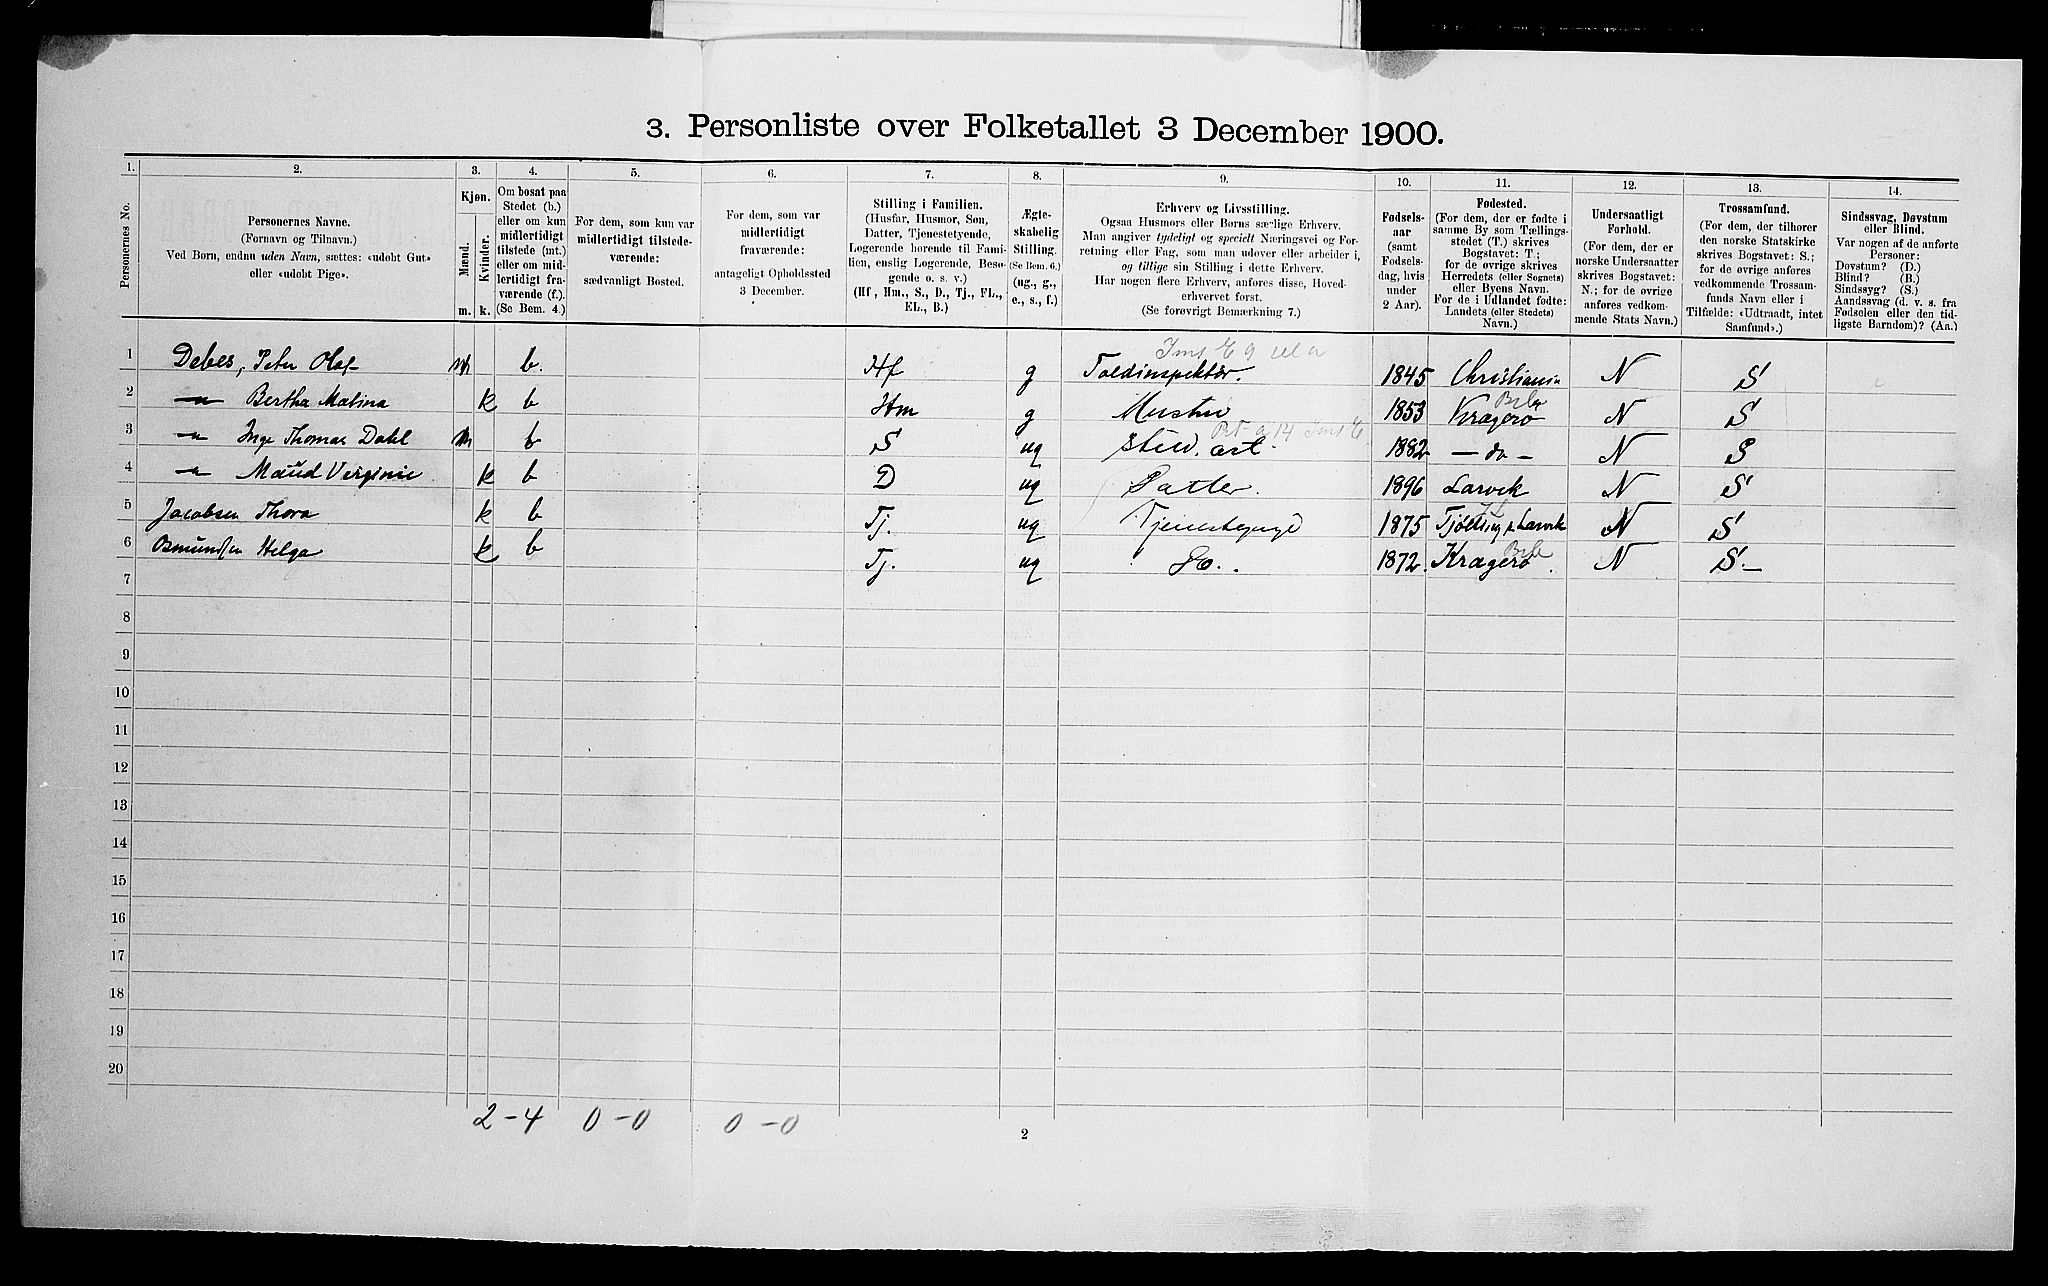 3. Personliste over Folketallet 3 December 1900.
1. 2. 3. 4. 5. 6. 7. 8. 9. 10. 11. 12. 13. 14.
Personernes No.
Personernes Navne.
(Fornavn og Tilnavn.)
Ved Børn, endnu uden Navn, sættes: «udøbt Gut»
eller «udøbt Pige».
Kjøn.
Mænd.
Kvinder.
m. k.
Om bosat paa
Stedet (b.)
eller om kun
midlertidigt
tilstede (mt.)
eller om mid-
lertidigt fra-
værende (f.).
(Se Bem. 4.)
For dem, som kun var
midlertidigt tilstede-
værende:
sædvanligt Bosted.
For dem, som var
midlertidigt
fraværende:
antageligt Opholdssted
3 December.
Stilling i Familien.
(Husfar, Husmor, Søn,
Datter, Tjenestetyende,
Logerende hørende til Fami-
lien, enslig Logerende, Besø-
gende o. s. v.)
(Hf, Hm., S., D., Tj., FL.,
EL., B.)
Ægte-
skabelig
Stilling.
(Se Bem. 6.)
(ug., g.,
e., s., f.)
Erhverv og Livsstilling.
Ogsaa Husmors eller Børns særlige Erhverv.
Man angiver tydeligt og specielt Næringsvei og For-
retning eller Fag, som man udøver eller arbeider i,
og tillige sin Stilling i dette Erhverv.
Har nogen flere Erhverv, anføres disse, Hoved-
erhvervet først.
(Se forøvrigt Bemærkning 7.)
Fødsels-
aar
(samt
Fødsels-
dag, hvis
under
2 Aar).
Fødested.
(For dem, der er fødte i
samme By som Tællings-
stedet (T.) skrives
Bogstavet: T.;
for de øvrige skrives
Herredets (eller Sognets)
eller Byens Navn.
For de i Udlandet fødte:
Landets (eller Stedets)
Navn.)
Undersaatligt
Forhold.
(For dem, der er
norske Undersaatter
skrives Bogstavet:
N.; for de øvrige
anføres vedkom-
mende Stats Navn.)
Trossamfund.
(For dem, der tilhører
den norske Statskirke
skrives Bogstavet: S.;
for de øvrige anføres
vedkommende Trossam-
funds Navn eller i
Tilfælde: «Udtraadt, intet
Samfund».)
Sindssvag, Døvstum
eller Blind.
Var nogen af de anførte
Personer:
Døvstum? (D.)
Blind? (B.)
Sindssyg? (S.)
Aandssvag (d. v. s. fra
Fødselen eller den tid-
ligste Barndom)? (Aa.)
1 Debes, Peter Olaf m b. Hf g Toldinspektør. 1845 Christiania N S
2 — " Bertha Malina k b Hm g Hustru 1853 Kragerø N S
3 — " Inge Thomas Dahl m b S ug stud. art. 1882 — do — N S
4 — " Maud Verginie k b D ug Datter. 1896 Larvik N S
5 Jacobsen Thora k b Tj. ug Tjenestepige 1875 Tjølling p. Larvik N S
6 Osmundsen Helga k b Tj. ug Do.. 1872. Kragerø. N S.—
7
8
9
10
11
12
13
14
15
16
17
18
19
20
2 – 4 0 – 0 0 – 0
2